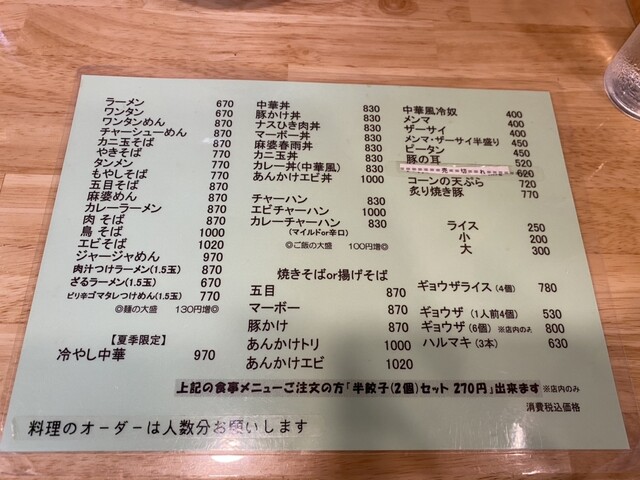 ラーメン 670
ワンタン 670
ワンタンめん 870
チャーシューめん 870
カニ玉そば 870
やきそば 770
タンメン 770
もやしそば 770
五目そば 870
麻婆めん 870
カレーラーメン 870
肉そば 870
鳥そば 1000
エビそば 1020
ジャージャめん 970
肉汁つけラーメン(1.5玉) 870
ざるラーメン(1.5玉) 670
ピリ辛ゴマタレつけめん(1.5玉) 770
◎麺の大盛 130円増◎
【夏季限定】
冷やし中華 970
中華丼 830
豚かけ丼 830
ナスひき肉丼 830
マーボー丼 830
麻婆春雨丼 830
カニ玉丼 830
カレー丼(中華風) 830
あんかけエビ丼 1000
チャーハン 830
エビチャーハン 1000
カレーチャーハン 830
(マイルドor辛口)
◎ご飯の大盛 100円増◎
焼きそばor揚げそば
五目 870
マーボー 870
豚かけ 870
あんかけトリ 1000
あんかけエビ 1020
中華風冷奴 400
メンマ 400
ザーサイ 400
メンマ・ザーサイ半盛り 450
ピータン 450
豚の耳 520
売 切 れ 620
コーンの天ぷら 720
炙り焼き豚 770
ライス 250
小 200
大 300
ギョウザライス (4個) 780
ギョウザ (1人前4個) 530
ギョウザ (6個) ※店内のみ 800
ハルマキ (3本) 630
上記の食事メニューご注文の方「半餃子(2個)セット 270円」出来ます ※店内のみ
消費税込価格
料理のオーダーは人数分お願いします